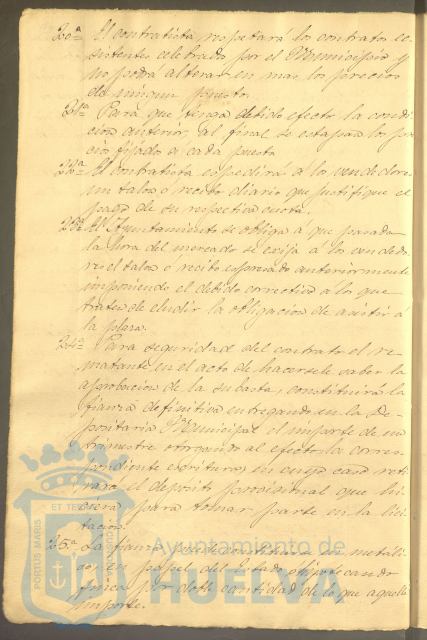 20ª El contratista respetará los contratos ec-
sistentes celebrado por el Municipio y
no podrá alterar en mas los precios
de ningun puesto.
21ª Para que tenga debido efecto la condi-
cion anterior, al final se estaparán los pre-
cios fijados a cada puesto
22ª El contratista espedirá a los vendedores
un talon ó recibo diario que justifique el
pago de su respectiva cuota.
23ª El Ayuntamiento se obliga a que pasada
la hora del mercado se exija a los vendedo-
res el talon ó recibo espresado anteriormente
imponiendo el debido correctivo a los que
traten de eludir la obligacion de asistir á
la plaza.
24ª Para seguridad del contrato el re-
matante en el acto de hacersele saber la
aprobacion de la subasta, constituirá la
fianza definitiva entregando en la De-
positaria Municipal el importe de un
trimestre otorgando al efecto la corres-
pondiente escritura, en cuyo caso reti-
rará el depósito provisional que hi-
ciera para tomar parte en la lici-
tacion.
25ª La fianza puede constituirse en metáli-
co, en papel del Estado ó hipotecando
finca por doble cantidad de lo que aquella
importe.
PORTUS MARIS ET TERRÆ
Ayuntamiento de
HUELVA